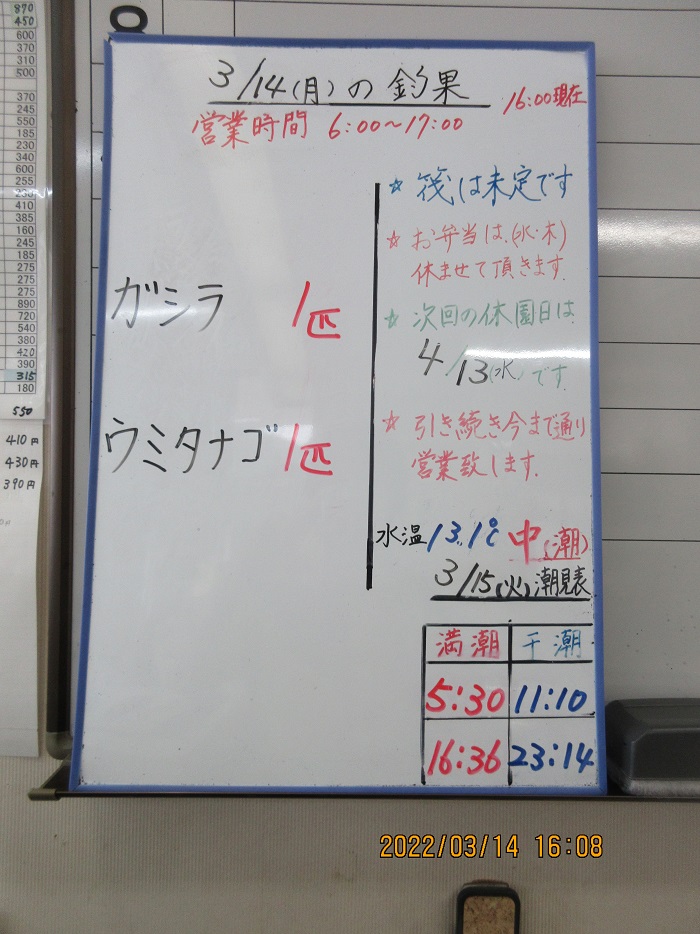 870
450
600
370
310
500
370
245
550
185
230
340
600
255
230
410
385
160
245
185
255
310
275
890
720
540
380
420
390
315
180
550
410円
430円
390円
3/14(月)の釣果
16:00現在
営業時間 6:00~17:00
ガシラ 1匹
ウミタナゴ 1匹
☆ 筏は未定です
☆ お弁当は、(水・木)
休ませて頂きます。
☆ 次回の休園日は
4/13(水)です。
☆ 引き続き今まで通り
営業致します。
水温13.1℃ 中(潮)
3/15(火)潮見表
満潮 干潮
5:30 11:10
16:36 23:14
2022/03/14 16:08